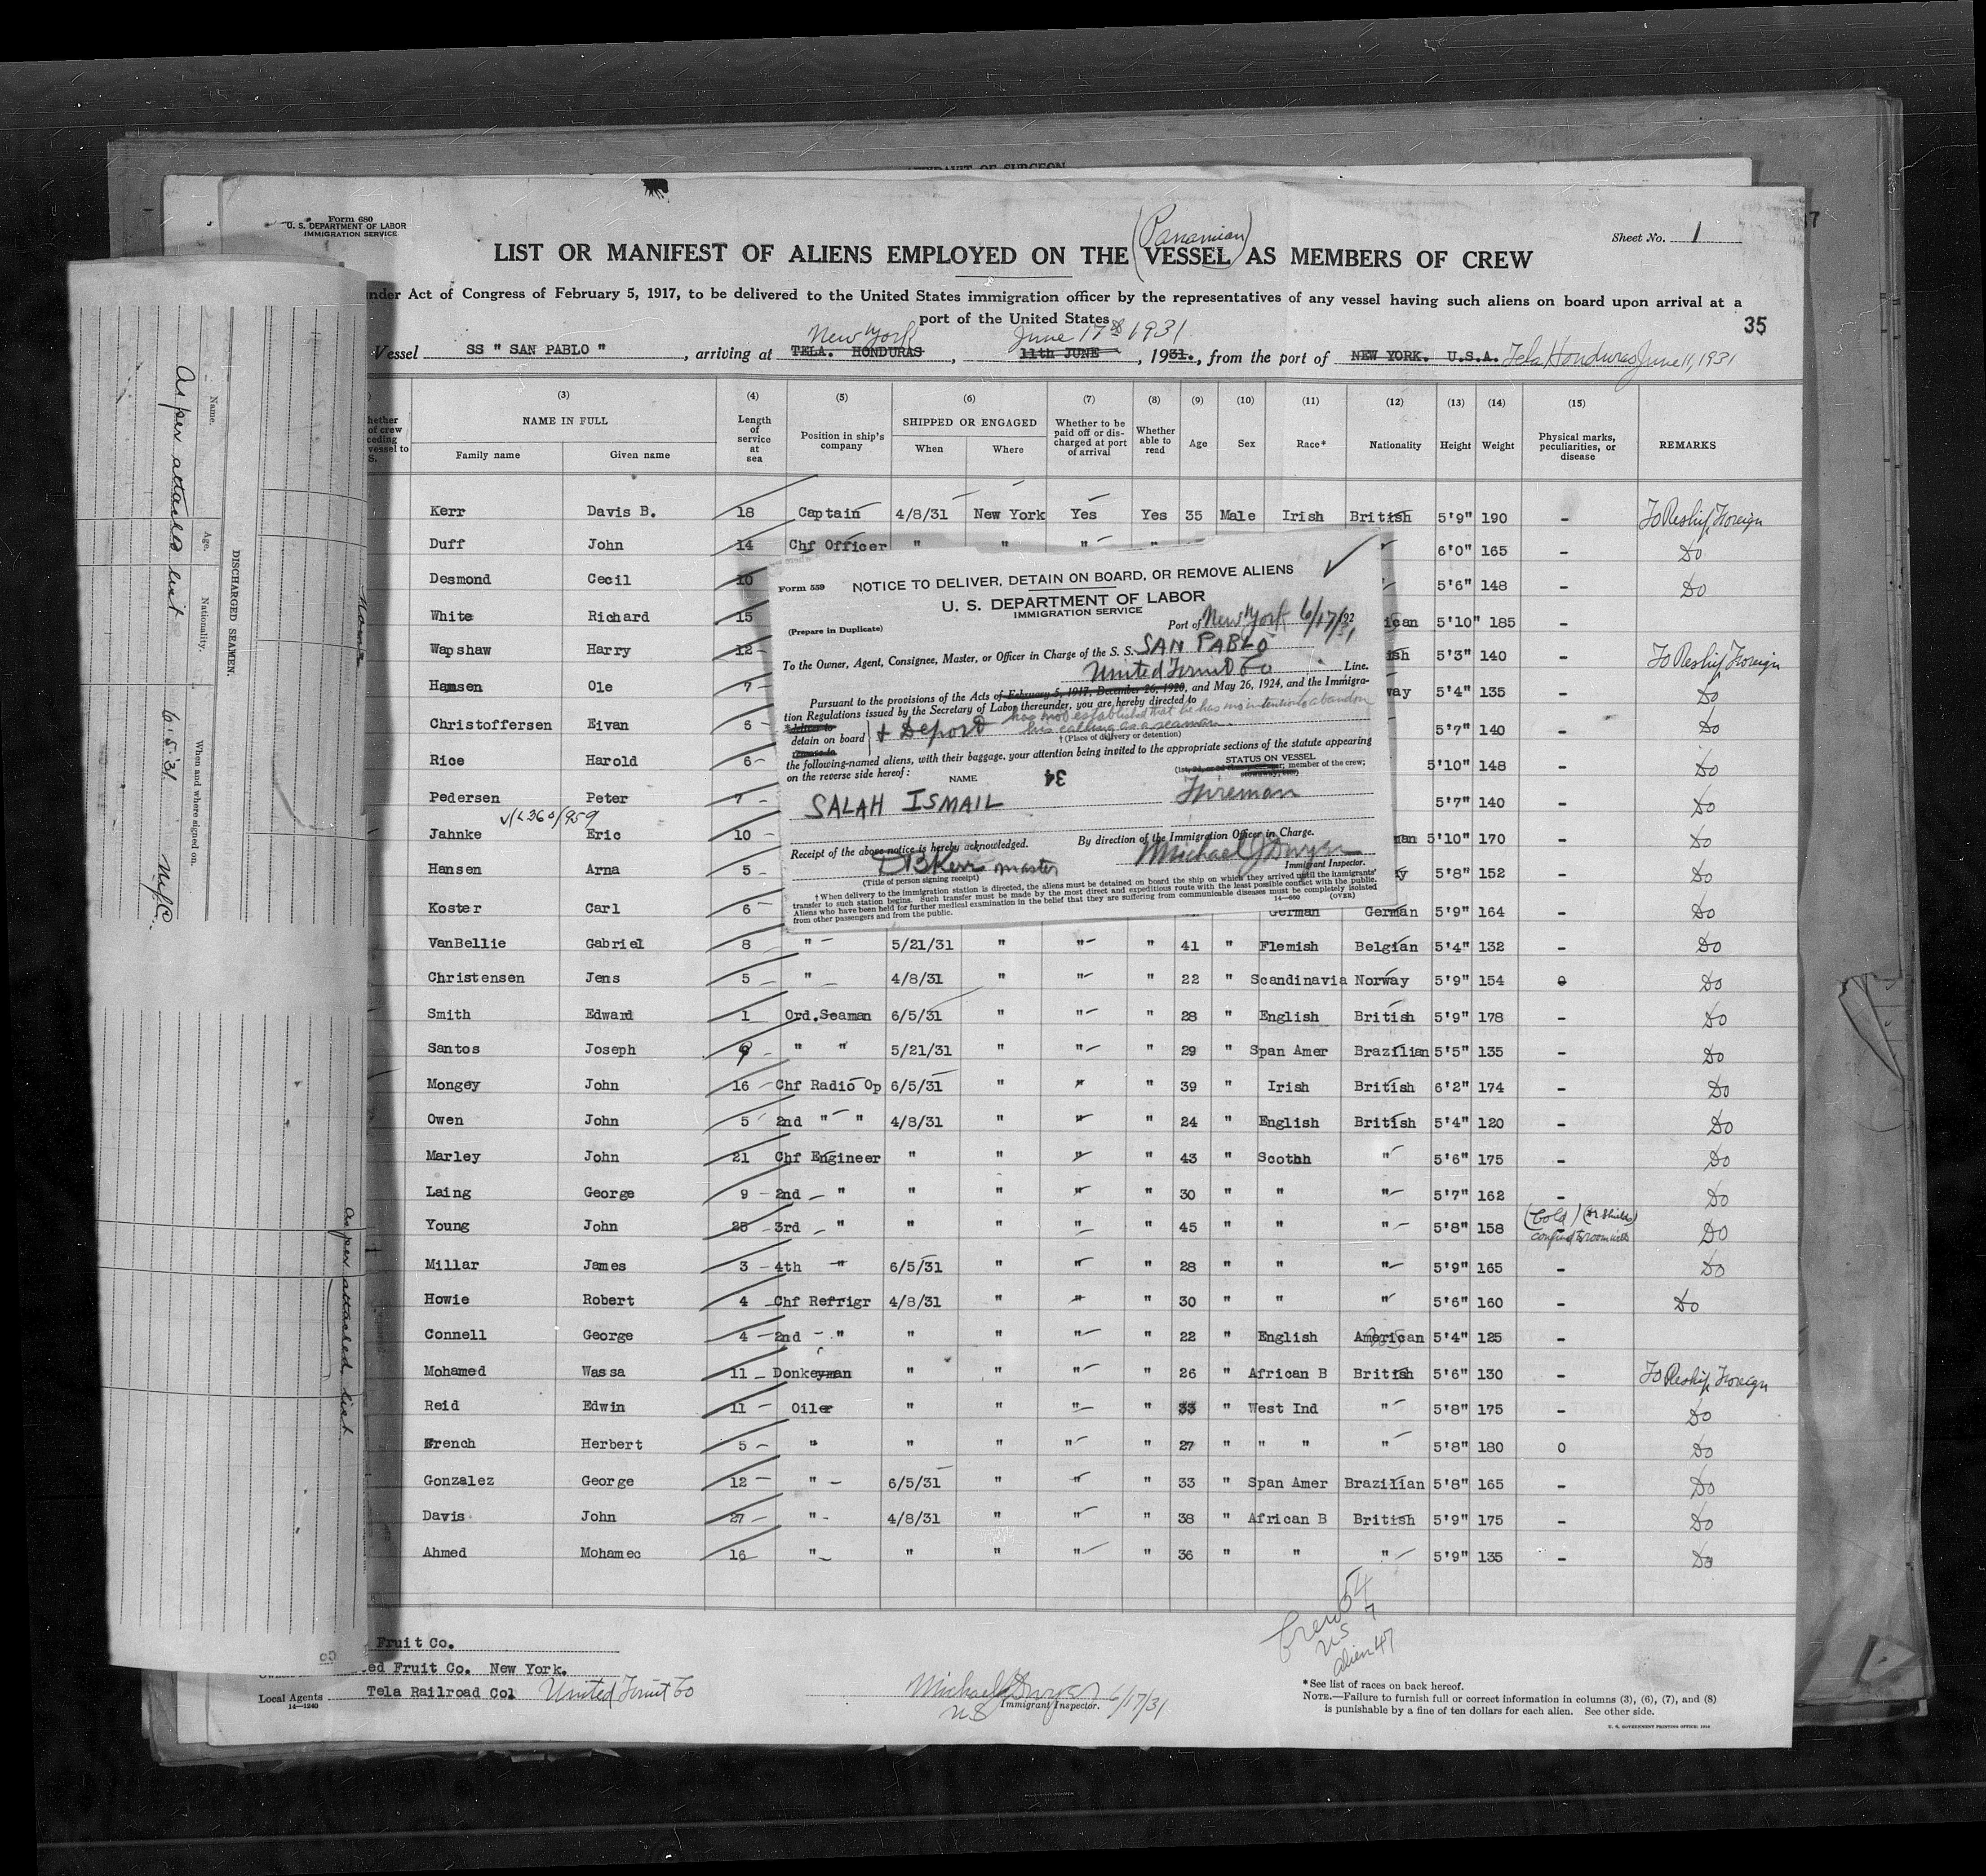 AFFIDAVIT OF SURGEON
Form 680
U. S. DEPARTMENT OF LABOR
IMMIGRATION SERVICE
Sheet No. 1
(Panamian)
LIST OR MANIFEST OF ALIENS EMPLOYED ON THE VESSEL AS MEMBERS OF CREW
under Act of Congress of February 5, 1917, to be delivered to the United States immigration officer by the representatives of any vessel having such aliens on board upon arrival at a
port of the United States
35
New York June 17th 1931
Vessel SS " SAN PABLO ", arriving at TELA. HONDURAS, 11th JUNE, 1931., from the port of NEW YORK. U.S.A. Tela Honduras June 11, 1931
(3) (4) (5) (6) (7) (8) (9) (10) (11) (12) (13) (14) (15)
NAME IN FULL
Family name Given name
Length of service at sea
Position in ship's company
SHIPPED OR ENGAGED
When Where
Whether to be paid off or discharged at port of arrival
Whether able to read
Age Sex Race* Nationality Height Weight
Physical marks, peculiarities, or disease
REMARKS
Kerr Davis B. 18 Captain 4/8/31 New York Yes Yes 35 Male Irish British 5'9" 190 - To Reship Foreign
Duff John 14 Chf Officer " " " " 6'0" 165 - Do
Desmond Cecil 10 5'6" 148 - Do
White Richard 15 ican 5'10" 185 -
Wapshaw Harry 12 ish 5'3" 140 - To Reship Foreign
Hamsen Ole 7 way 5'4" 135 - Do
Christoffersen Eivan 6 5'7" 140 - Do
Rice Harold 6 5'10" 148 - Do
Pedersen Peter 7 5'7" 140 - Do
Jahnke Eric 10 man 5'10" 170 - Do
Hansen Arna 5 y 5'8" 152 - Do
Koster Carl 6 German German 5'9" 164 - Do
VanBellie Gabriel 8 " 5/21/31 " " " 41 " Flemish Belgian 5'4" 132 - Do
Christensen Jens 5 " 4/8/31 " " " 22 " Scandinavia Norway 5'9" 154 Do
Smith Edward 1 Ord.Seaman 6/5/31 " " " 28 " English British 5'9" 178 - Do
Santos Joseph " " 5/21/31 " " " 29 " Span Amer Brazilian 5'5" 135 - Do
Mongey John 16 Chf Radio Op 6/5/31 " " " 39 " Irish British 6'2" 174 - Do
Owen John 5 2nd " " 4/8/31 " " " 24 " English British 5'4" 120 - Do
Marley John 21 Chf Engineer " " " " 43 " Scothh " 5'6" 175 - Do
Laing George 9 2nd " " " " " 30 " " " 5'7" 162 - Do
Young John 25 3rd " " " " " 45 " " " 5'8" 158 (Cold) Do
Millar James 3 4th " 6/5/31 " " " 28 " " " 5'9" 165 - Do
Howie Robert 4 Chf Refrigr 4/8/31 " " " 30 " " " 5'6" 160 - Do
Connell George 4 2nd " " " " " 22 " English American 5'4" 125 -
Mohamed Wassa 11 Donkeyman " " " " 26 " African B British 5'6" 130 - To Reship Foreign
Reid Edwin 11 Oiler " " " " 33 " West Ind " 5'8" 175 - Do
French Herbert 5 " " " " " 27 " " " " 5'8" 180 0 Do
Gonzalez George 12 " 6/5/31 " " " 33 " Span Amer Brazilian 5'8" 165 - Do
Davis John 27 " 4/8/31 " " " 38 " African B British 5'9" 175 - Do
Ahmed Mohamec 16 " " " " " 36 " " " 5'9" 135 - Do
Form 559 NOTICE TO DELIVER, DETAIN ON BOARD, OR REMOVE ALIENS
U. S. DEPARTMENT OF LABOR
IMMIGRATION SERVICE
(Prepare in Duplicate)
Port of New York 6/17/31
To the Owner, Agent, Consignee, Master, or Officer in Charge of the S. S. SAN PABLO
United Fruit Co Line.
Pursuant to the provisions of the Acts of February 5, 1917, December 26, 1920, and May 26, 1924, and the Immigra-
tion Regulations issued by the Secretary of Labor thereunder, you are hereby directed to
has not established that he has no intention to abandon
his calling as a seaman
detain on board & Deport
† (Place of delivery or detention)
the following-named aliens, with their baggage, your attention being invited to the appropriate sections of the statute appearing
on the reverse side hereof:
NAME
34
STATUS ON VESSEL
SALAH ISMAIL Fireman
Receipt of the above notice is hereby acknowledged. By direction of the Immigration Officer in Charge.
D B Kerr master Michael J Dwyer
(Title of person signing receipt) Immigrant Inspector.
† When delivery to the immigration station is directed, the aliens must be detained on board the ship on which they arrived until the immigrants'
transfer to such station begins. Such transfer must be made by the most direct and expeditious route with the least possible contact with the public.
Aliens who have been held for further medical examination in the belief that they are suffering from communicable diseases must be completely isolated
from other passengers and from the public.
14—660 (OVER)
DISCHARGED SEAMEN.
Name. Age. Nationality. When and where signed on.
As per attached list 6.5.31
As per attached list
Crew 54
7
US
Alien 47
Fruit Co.
ed Fruit Co. New York.
Local Agents Tela Railroad Col United Fruit Co
14—1240
Michael J Dwyer 6/17/31
Immigrant Inspector.
*See list of races on back hereof.
NOTE.—Failure to furnish full or correct information in columns (3), (6), (7), and (8)
is punishable by a fine of ten dollars for each alien. See other side.